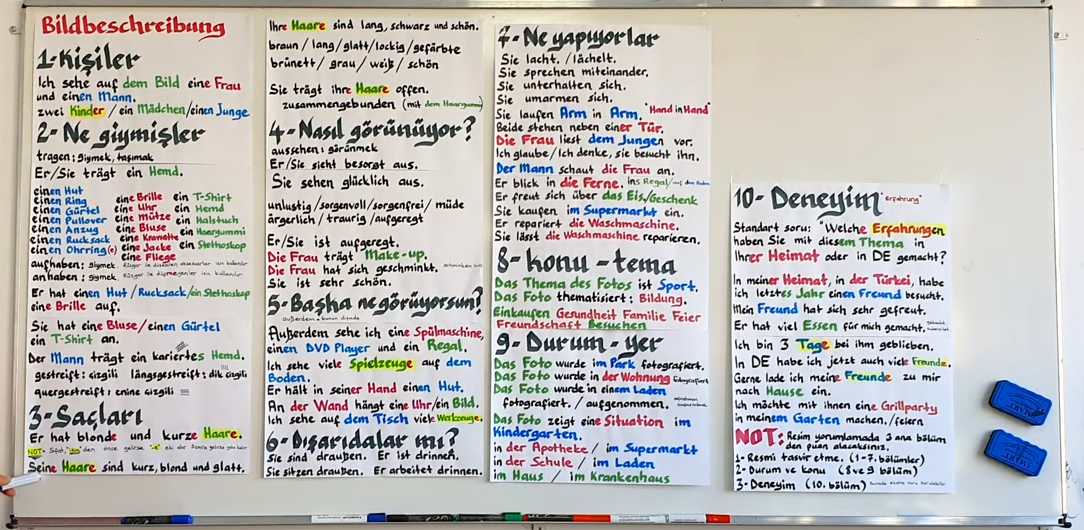 Bildbeschreibung
1-Kişiler
Ich sehe auf dem Bild eine Frau
und einen Mann.
zwei Kinder / ein Mädchen/einen Junge
2- Ne giymişler
tragen: giymek, taşımak
Er/Sie trägt ein Hemd.
einen Hut
einen Ring eine Brille ein T-Shirt
einen Gürtel eine Uhr ein Hemd
einen Pullover eine mütze ein Halstuch
einen Anzug eine Bluse ein Haargummi
einen Rucksack eine Kravatte ein Stethoskop
einen Ohrring(e) eine Jacke
eine Fliege
aufhaben: giymek.
anhaben: giymek.
Er hat einen Hut / Rucksack /ein Stethoskop
eine Brille auf.
Sie hat eine Bluse/einen Gürtel
ein T-Shirt an.
Der Mann trägt ein kariertes Hemd.
gestreift: çizgili längsgestreift: dik çizgili
quergestreift: enine çizgili
3-Saçları
Er hat blonde und kurze Haare.
NOT:
Seine Haare sind kurz, blond und glatt.
Ihre Haare sind lang, schwarz und schön.
braun / lang / glatt / lockig / gefärbte
brünett / grau / weiß / schön
Sie trägt ihre Haare offen.
zusammengebunden (mit dem Haargummi)
4-Nasıl görünüyor?
aussehen: görünmek
Er/Sie sieht besorgt aus.
Sie sehen glücklich aus.
unlustig /sorgenvoll /sorgenfrei / müde
ärgerlich / traurig /aufgeregt
Er/Sie ist aufgeregt.
Die Frau trägt Make-up.
Die Frau hat sich geschminkt.
Sie ist sehr schön.
5-Başka ne görüyorsun?
Außerdem sehe ich eine Spülmaschine,
einen DVD Player und ein Regal.
Ich sehe viele Spielzeuge auf dem
Boden.
Er hält in seiner Hand einen Hut.
An der Wand hängt eine Uhr/ein Bild.
Ich sehe auf dem Tisch viele Werkzeuge.
6-Dışarıdalar mı?
Sie sind draußen. Er ist drinnen.
Sie sitzen draußen. Er arbeitet drinnen.
7-Ne yapıyorlar
Sie lacht. /lächelt.
Sie sprechen miteinander.
Sie unterhalten sich.
Sie umarmen sich.
Sie laufen Arm in Arm. "Hand in Hand"
Beide stehen neben einer Tür.
Die Frau liest dem Jungen vor.
Ich glaube/Ich denke, sie besucht ihn.
Der Mann schaut die Frau an.
Er blick in die Ferne. ins Regal/
Er freut sich über das Eis/Geschenk
Sie kaufen im Supermarkt ein.
Er repariert die Waschmaschine.
Sie lässt die Waschmaschine reparieren.
8-konu-tema
Das Thema des Fotos ist Sport.
Das Foto thematisiert: Bildung.
Einkaufen Gesundheit Familie Feier
Freundschaft Besuchen
9-Durum-yer
Das Foto wurde im Park fotografiert.
Das Foto wurde in der Wohnung fotografiert
Das Foto wurde in einem Laden
fotografiert. / aufgenommen.
Das Foto zeigt eine Situation im
Kindergarten.
in der Apotheke / im Supermarkt
in der Schule / im Laden
im Haus / im Krankenhaus
10-Deneyim "erfahrung"
Standart soru: "Welche Erfahrungen
haben Sie mit diesem Thema in
Ihrer Heimat oder in DE gemacht?
In meiner Heimat, in der Türkei, habe
ich letztes Jahr einen Freund besucht.
Mein Freund hat sich sehr gefreut.
Er hat viel Essen für mich gemacht.
Ich bin 3 Tage bei ihm geblieben.
In DE habe ich jetzt auch viele Freunde.
Gerne lade ich meine Freunde zu mir
nach Hause ein.
Ich möchte mit ihnen eine Grillparty
in meinem Garten machen./feiern
NOT: Resim yorumlamada 3 ana bölüm
den puan alacaksınız.
1- Resmi tasvir etme. (1-7. bölümler)
2- Durum ve konu (8 ve 9 bölüm)
3- Deneyim (10. bölüm)